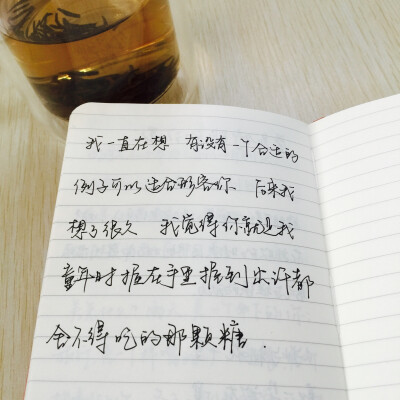 我一直在想 有没有一个合适的
例子可以适合形容你 后来我
想了很久 我觉得你就是我
童年时握在手里握到出汗都
舍不得吃的那颗糖.